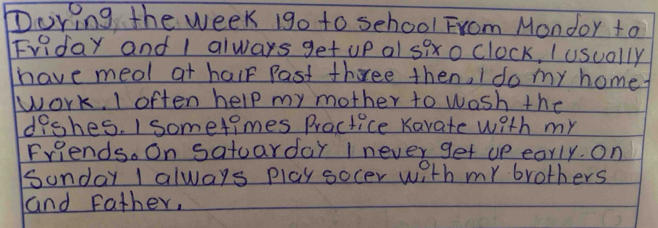 During, the week I go to school From Mondoy to
Friday and I always get up al six o clock. I usually
have meal at half past three then, I do my home-
work. I often help my mother to wosh the
dishes. I sometimes practice Karate with my
Friends. On Satuarday I never get up early. On
Sunday I always play socer with my brothers
and Father.